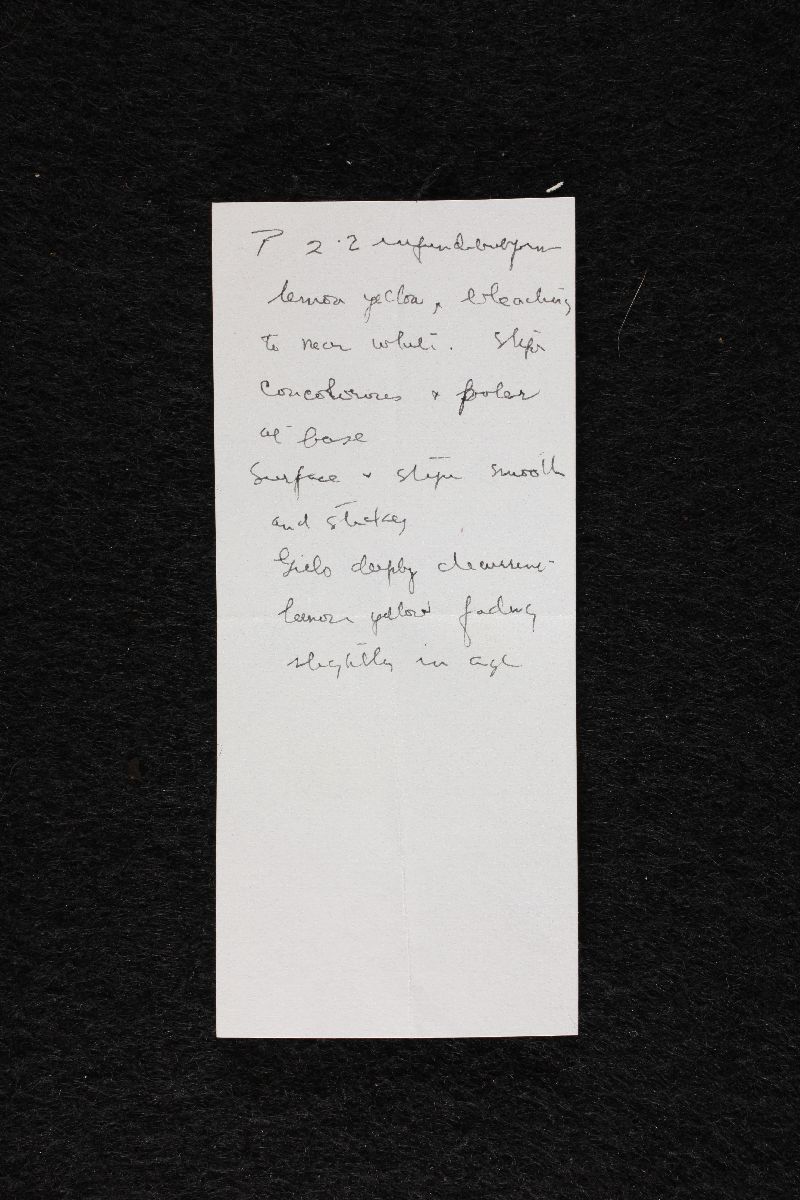 P 2·2 infundibuliform
lemon yellow, bleaching
to near white. Stipe
concolorous & paler
at base
Surface & stipe smooth
and stickey
Gills deeply decurrent
lemon yellow fading
slightly in age